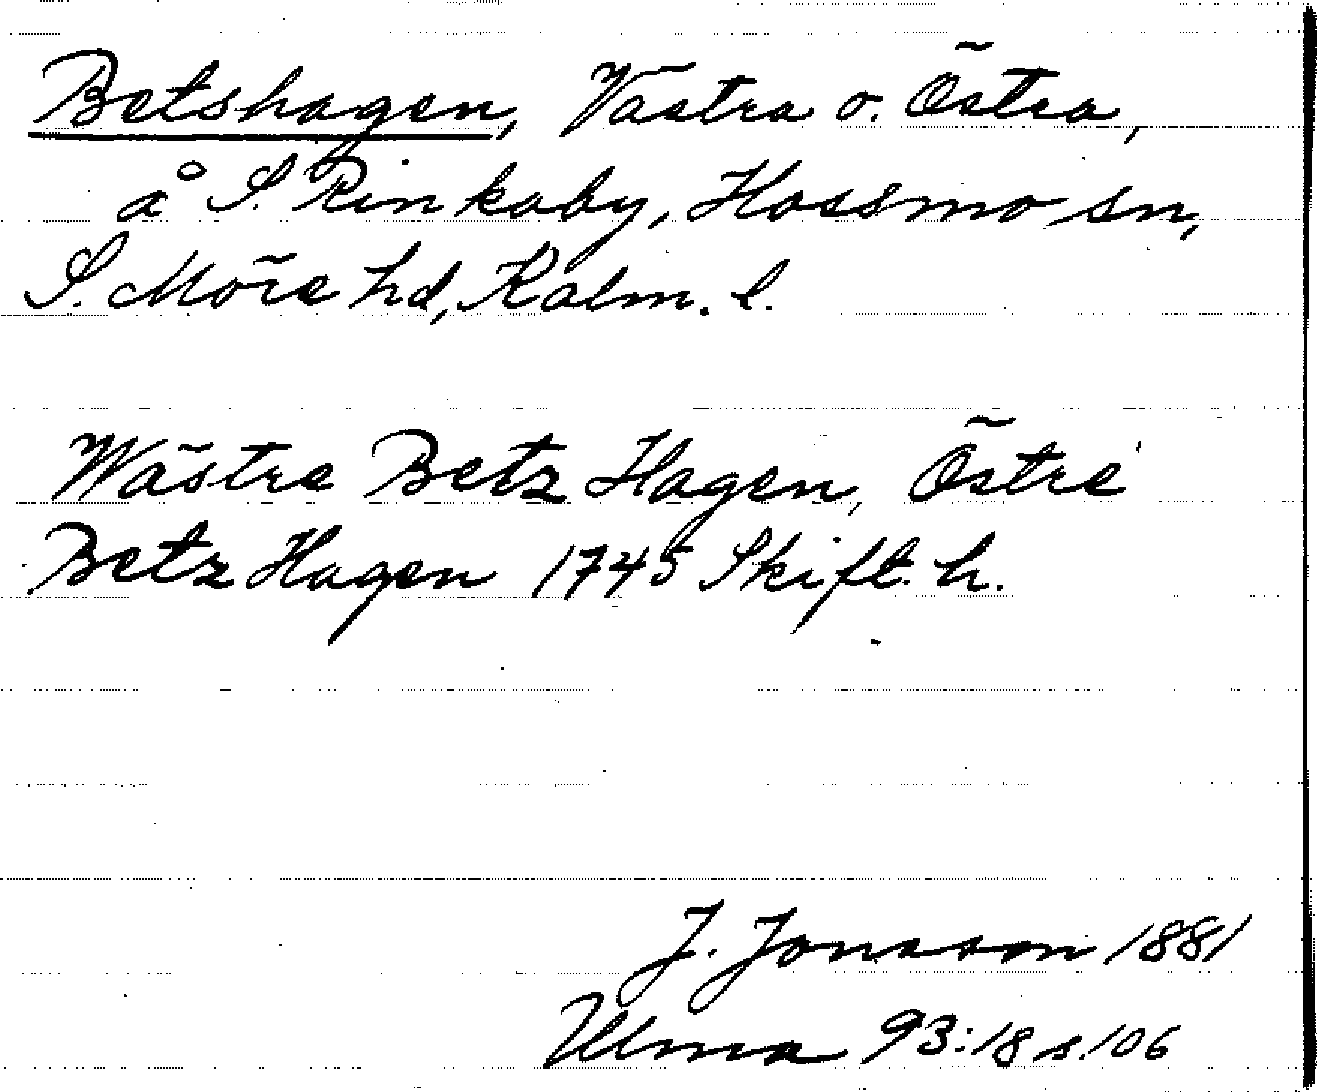 Betshagen, Västra o. Östra,
å S. Rinkaby, Hossmo sn,
S. Möre hd, Kalm. l.
Wästre Betz Hagen, Östre
Betz Hagen 1745 Skift. h.
J. Jonsson 1881
Ulma 93:18 s. 106